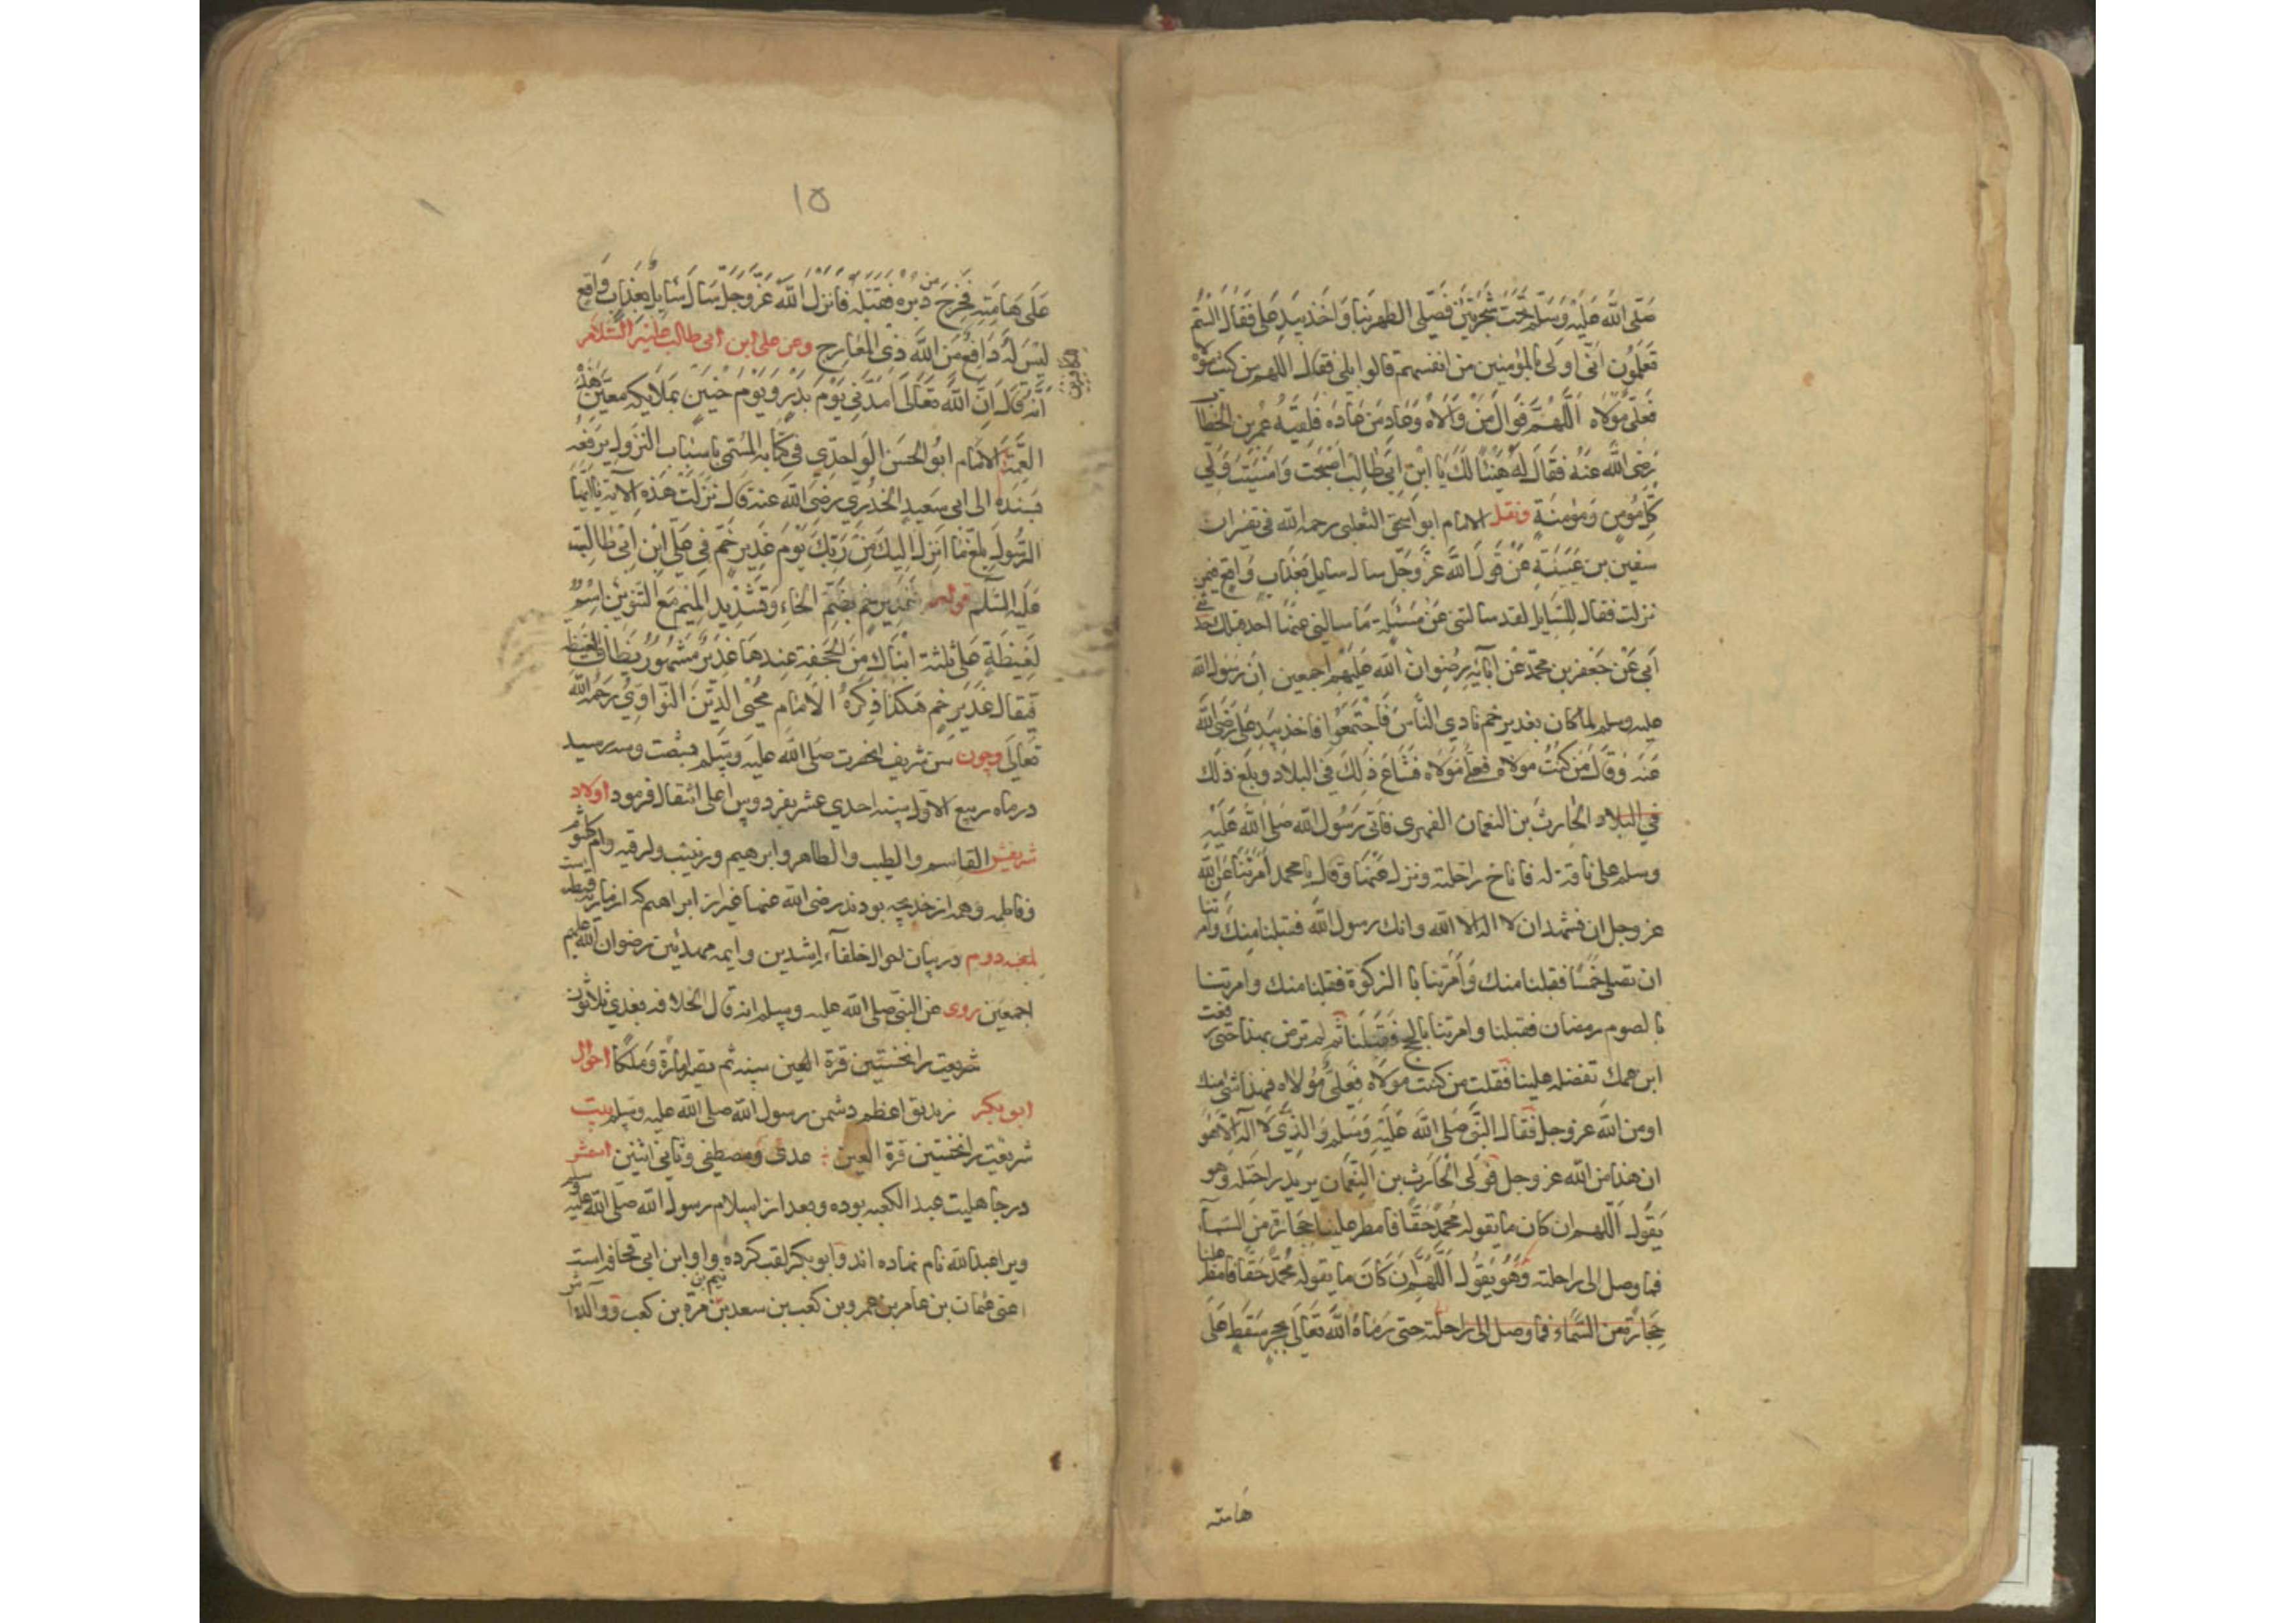 صلی الله علیه وسلم تحت شجرتین فصلی الظهر بنا واخذ بید علی فقال الستم
تعلمون انی اولی بالمؤمنین من انفسهم قالوا بلی فقال اللهم من کنت مولاه
فعلی مولاه اللهم وال من والاه وعاد من عاداه فلقیه عمر بن الخطاب
رضی الله عنه فقال له هنیئا لک یا ابن ابی طالب اصبحت وامسیت ولی
کل مؤمن ومؤمنة ونقل الامام ابو اسحق الثعلبی رحمه الله فی تفسیره ان
سفین بن عیینة عن قول الله عز وجل سال سایل بعذاب واقع فیمن
نزلت فقال للسایل لقد سالتنی عن مسئلة ما سالنی عنها احد قبلک حدثنی
ابی عن جعفر بن محمد عن آبائه رضوان الله علیهم اجمعین ان رسول الله
علیه وسلم لما کان بغدیر خم نادی الناس فاجتمعوا فاخذ بید علی رضی الله
عنه وقال من کنت مولاه فعلی مولاه فشاع ذلک فی البلاد وبلغ ذلک
فی البلاد الحارث بن النعمان الفهری فاتی رسول الله صلی الله علیه
وسلم علی ناقة له فاناخ راحلته ونزل عنها وقال یا محمد امرتنا عن الله
عز وجل ان نشهد ان لا اله الا الله وانک رسول الله فقبلنا منک وامرتنا
ان نصلی خمسا فقبلنا منک وامرتنا بالزکوة فقبلنا منک وامرتنا
بالصوم رمضان فقبلنا وامرتنا بالحج فقبلنا ثم لم ترض بهذا حتی رفعت
ابن عمک تفضله علینا فقلت من کنت مولاه فعلی مولاه فهذا شی منک
او من الله عز وجل فقال النبی صلی الله علیه وسلم والذی لا اله الا هو
ان هذا من الله عز وجل فولی الحارث بن النعمان یرید راحلته وهو
یقول اللهم ان کان ما یقوله محمد حقا فامطر علینا حجارة من السماء
فما وصل الی راحلته وهو یقول اللهم ان کان ما یقوله محمد حقا فامطر علینا
حجارة من السماء فما وصل الی راحلته حتی رماه الله تعالی بحجر سقط علی
هامته
۱۵
علی هامته فخرج من دبره فقتله فانزل الله عز وجل سال سایل بعذاب واقع
للکافرین
لیس له دافع من الله ذی المعارج وعن علی ابن ابی طالب علیه السلام
انه قال ان الله تعالی امدنی یوم بدر ویوم حنین بملایکه معتمین هذه
العمة الامام ابو الحسن الواحدی فی کتابه المسمی باسباب النزول یرفعه
بسنده الی ابی سعید الخدری رضی الله عنه قال نزلت هذه الآیة یا ایها
الرسول بلغ ما انزل الیک من ربک یوم غدیر خم فی علی ابن ابی طالب
علیه السلم قوله غدیر خم بضم الخاء وتشدید المیم مع التنوین اسم
لغیظة علی ثلثة امیال من الجحفة عندها غدیر مشهور یضاف الغیظه
فیقال غدیر خم هکذا ذکره الامام محیی الدین النواوی رحمه الله
تعالی وچون سن شریف انحضرت صلی الله علیه وسلم بشصت وسه رسید
در ماه ربیع الاول سنه احدی عشر بفردوس اعلی انتقال فرمود اولاد
شریفش القاسم والطیب والطاهر وابرهیم وزینب ورقیه وام کلثوم
وفاطمه وهمه از خدیجه بودند رضی الله عنها غیر از ابراهیم که از ماریه قبطیه است
لمعه دوم در بیان احوال خلفاء راشدین وایمه مهدیین رضوان الله علیهم
اجمعین روی عن النبی صلی الله علیه وسلم انه قال الخلافه بعدی ثلاثون
شریعت را نخستین قرة العین سنه ثم یصیر امارة وملکا احوال
ابو بکر زندیق اعظم دشمن رسول الله صلی الله علیه وسلم بیت
شریعت را نخستین قرة العین عدی ومصطفی وثانی اثنین اسمش
در جاهلیت عبد الکعبه بوده وبعد از اسلام رسول الله صلی الله علیه وسلم
ویرا عبدالله نام نهاده اند وابو بکر لقب کرده واو ابن ابی قحافه است
اعنی عثمان بن عامر بن عمرو بن کعب بن سعد بن تیم بن مرة بن کعب ووالده اش